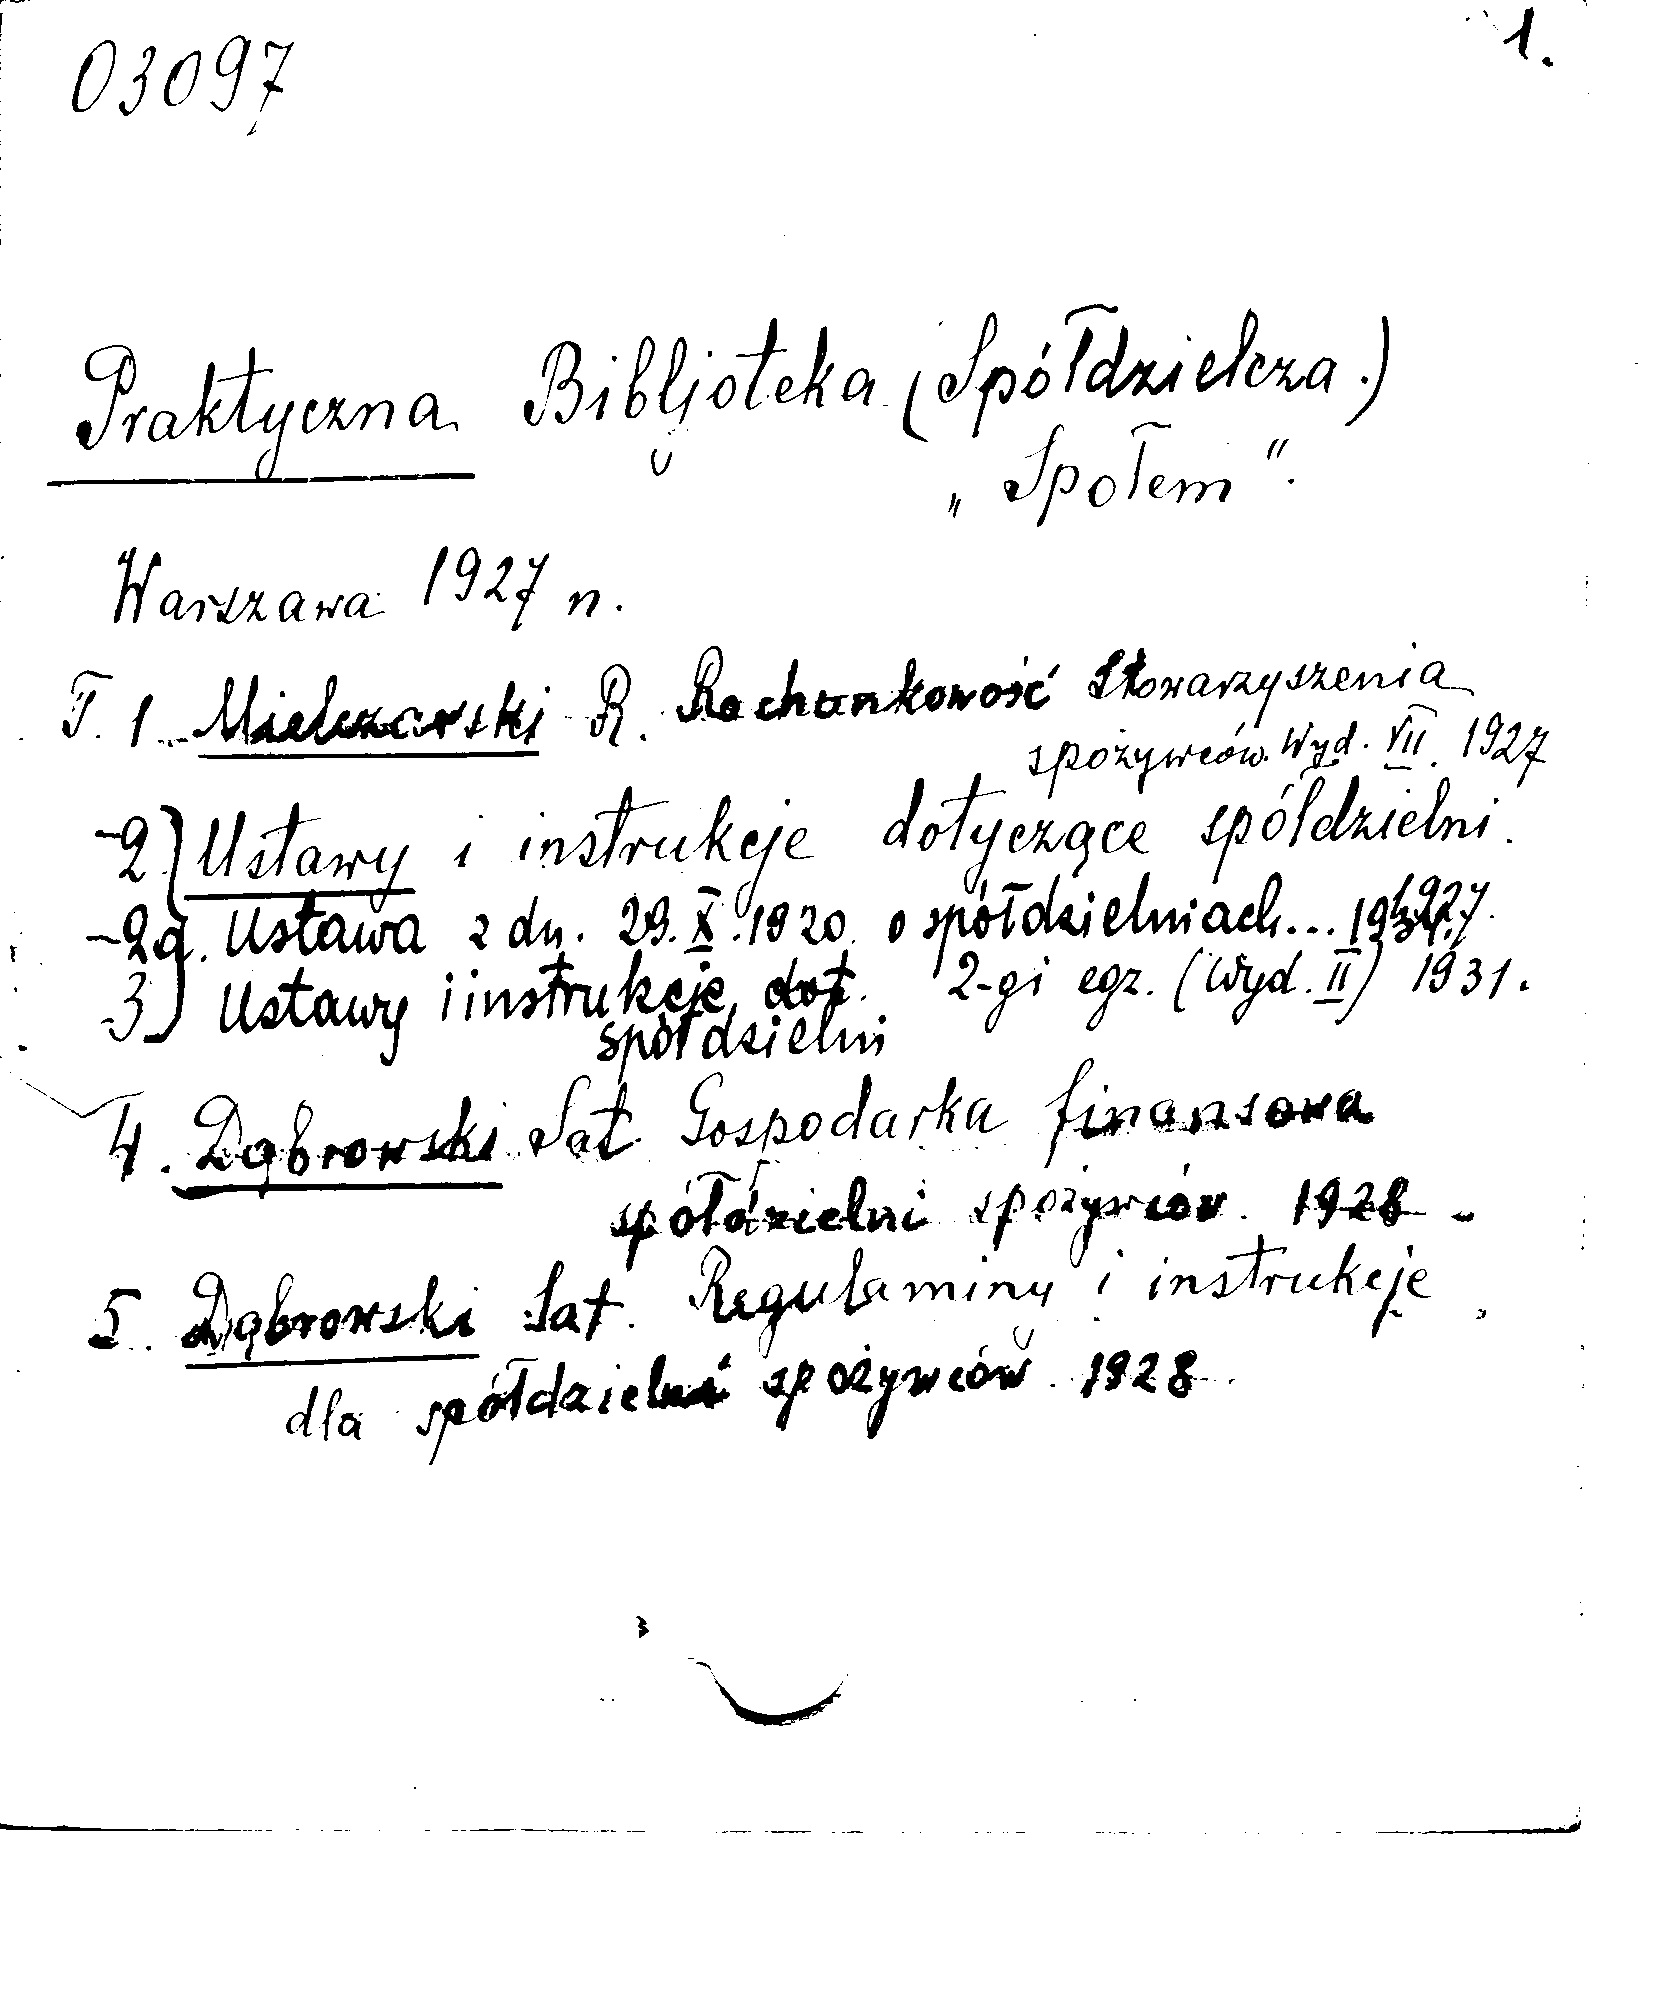 03097
1.
Praktyczna Bibljoteka (Spółdzielcza.)
„Społem”.
Warszawa 1927 n.
T. 1 Mielczarski R. Rachunkowość Stowarzyszenia
spożywców. Wyd. VII. 1927
-2) Ustawy i instrukcje dotyczące spółdzielni.
-2a. Ustawa z dn. 29.X.1920 o spółdzielniach... 1927.
-3) Ustawy i instrukcje dot. 2-gi egz. (Wyd. II) 1931.
spółdzielni
4. Dąbrowski Sat. Gospodarka finansowa
spółdzielni spożywców. 1928 -
5. Dąbrowski Sat. Regulaminy i instrukcje
dla spółdzielni spożywców. 1928.